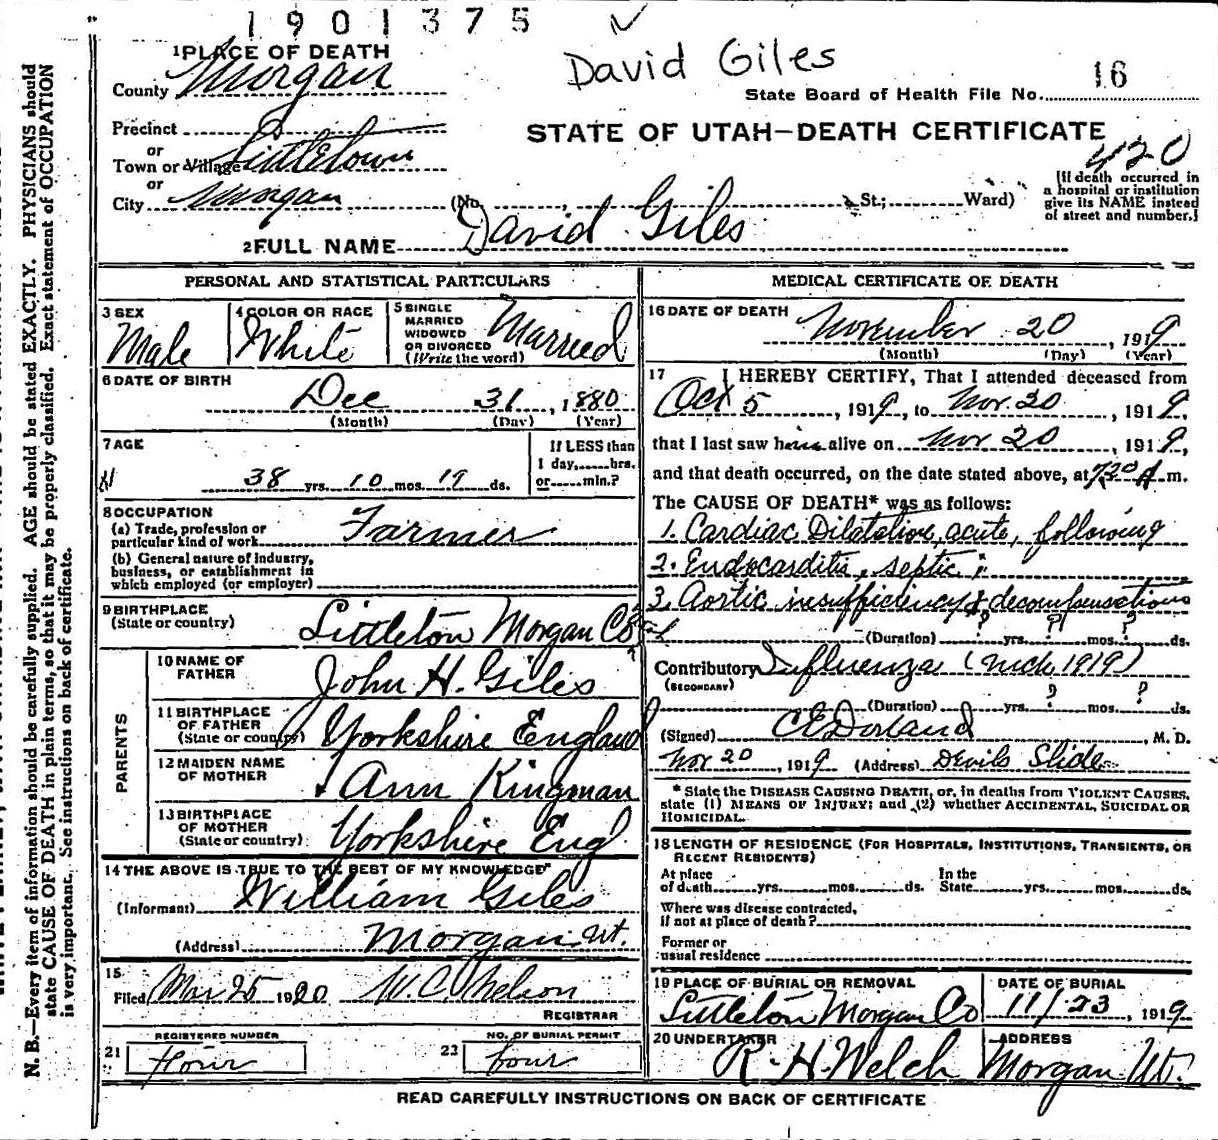 1901375
David Giles
1 PLACE OF DEATH
County Morgan
State Board of Health File No. 16
STATE OF UTAH—DEATH CERTIFICATE
420
Precinct
or
Town or Village Littletown
or
City Morgan (No. , St.; Ward)
[If death occurred in
a hospital or institution
give its NAME instead
of street and number.]
2 FULL NAME David Giles
PERSONAL AND STATISTICAL PARTICULARS
3 SEX
Male
4 COLOR OR RACE
White
5 SINGLE
MARRIED
WIDOWED
OR DIVORCED
(Write the word)
Married
6 DATE OF BIRTH
Dec 31, 1880
(Month) (Day) (Year)
7 AGE
38 yrs. 10 mos. 19 ds.
If LESS than
1 day, hrs.
or min.?
8 OCCUPATION
(a) Trade, profession or
particular kind of work Farmer
(b) General nature of industry,
business, or establishment in
which employed (or employer)
9 BIRTHPLACE
(State or country) Littleton Morgan Co
PARENTS
10 NAME OF
FATHER John H. Giles
11 BIRTHPLACE
OF FATHER
(State or country) Yorkshire England
12 MAIDEN NAME
OF MOTHER Ann Kingman
13 BIRTHPLACE
OF MOTHER
(State or country) Yorkshire Eng
14 THE ABOVE IS TRUE TO THE BEST OF MY KNOWLEDGE
(Informant) William Giles
(Address) Morgan Ut.
15
Filed Mar 25 1920 W. C. Nelson
REGISTRAR
REGISTERED NUMBER
21 Four
NO. OF BURIAL PERMIT
22 four
MEDICAL CERTIFICATE OF DEATH
16 DATE OF DEATH
November 20, 1919
(Month) (Day) (Year)
17 I HEREBY CERTIFY, That I attended deceased from
Oct 5, 1919, to Nov. 20, 1919,
that I last saw him alive on Nov. 20, 1919,
and that death occurred, on the date stated above, at 730 A m.
The CAUSE OF DEATH* was as follows:
1. Cardiac Dilatation, acute, following
2. Endocarditis, septic;
3. Aortic insufficiency & decompensations
(Duration) ? yrs. ? mos. ? ds.
Contributory Influenza (Mch. 1919)
(SECONDARY)
(Duration) yrs. ? mos. ? ds.
(Signed) C E Dorland, M. D.
Nov 20, 1919 (Address) Devils Slide
* State the DISEASE CAUSING DEATH, or, in deaths from VIOLENT CAUSES,
state (1) MEANS OF INJURY; and (2) whether ACCIDENTAL, SUICIDAL OR
HOMICIDAL.
18 LENGTH OF RESIDENCE (FOR HOSPITALS, INSTITUTIONS, TRANSIENTS, OR
RECENT RESIDENTS)
At place In the
of death yrs. mos. ds. State yrs. mos. ds.
Where was disease contracted,
if not at place of death?
Former or
usual residence
19 PLACE OF BURIAL OR REMOVAL
Littleton Morgan Co
DATE OF BURIAL
11/23, 1919
20 UNDERTAKER
R. H. Welch
ADDRESS
Morgan Ut.
READ CAREFULLY INSTRUCTIONS ON BACK OF CERTIFICATE
N. B.—Every item of information should be carefully supplied. AGE should be stated EXACTLY. PHYSICIANS should
state CAUSE OF DEATH in plain terms, so that it may be properly classified. Exact statement of OCCUPATION
is very important. See instructions on back of certificate.